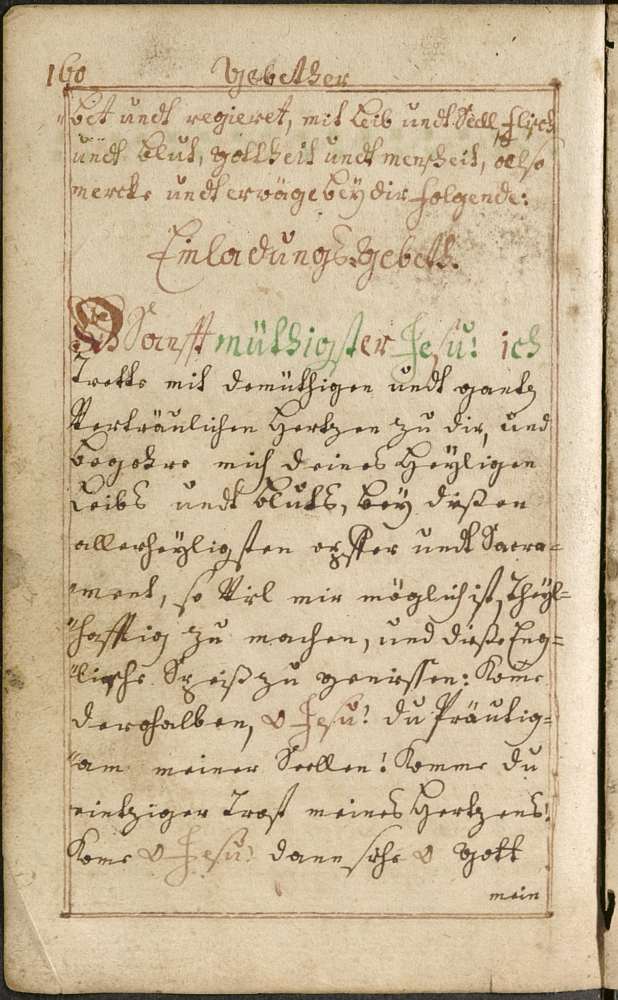 160 Gebether
bet undt regieret, mit Leib undt Seell, fleisch
undt bluet, gottheit undt menscheit, also
mercke undt erwäge bey dir folgende:
Einladungs-Gebeth.
O Sanfftmüthigster Jesu! ich
Trette mit demüthigen undt gantz
Verträulichen Hertzen zu dir, und
begehre mich deines Heyligen
Leibs undt bluts, bey dißen
allerheyligsten opffer undt Sacra=
ment, so Viel mir möglich ist, theyl=
hafftig zu machen, und dieße Eng=
lische Speiß zu geniessen: Kome
derohalben, O Jesu! du Bräutig=
am meiner Seellen! Komme du
eintziger Trost meines Hertzens!
Kome O Jesu! dann sehe O gott
mein